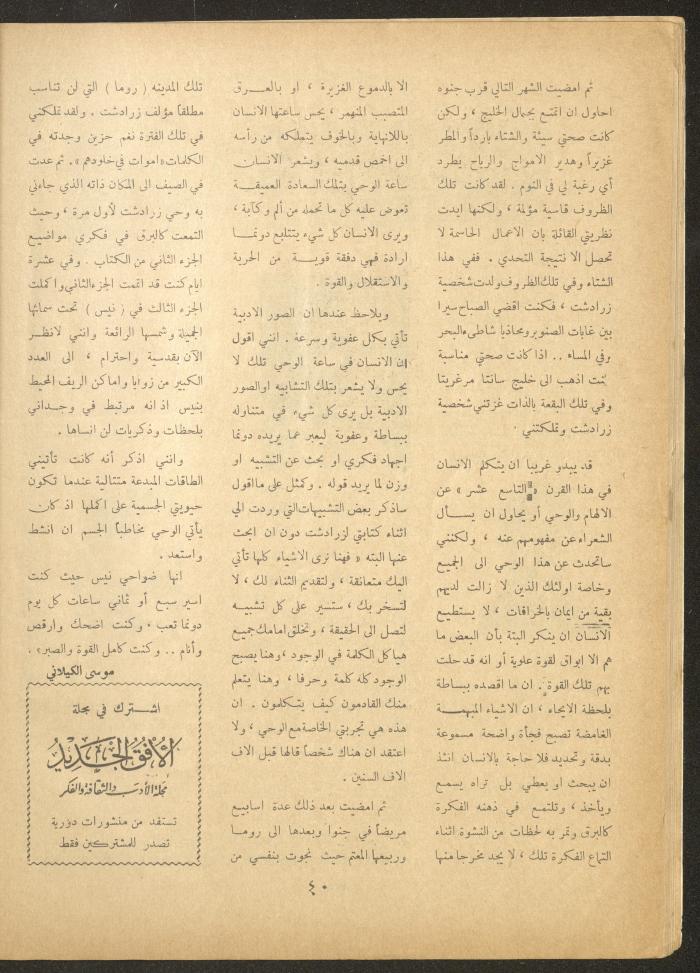 ثم امضيت الشهر التالي قرب جنوه
احاول ان اتمتع بجمال الخليج ، ولكن
كانت صحتي سيئة والشتاء بارداً والمطر
غزيراً وهدير الامواج والرياح يطرد
أي رغبة لي في النوم . لقد كانت تلك
الظروف قاسية مؤلمة ، ولكنها ايدت
نظريتي القائلة بان الاعمال الحاسمة لا
تحصل الا نتيجة التحدي . ففي هذا
الشتاء وفي تلك الظروف ولدت شخصية
زرادشت ، فكنت اقضي الصباح سيرا
بين غابات الصنوبر ومحاذيا شاطىء البحر
في المساء .. اذا كانت صحتي مناسبة
كنت اذهب الى خليج سانتا مرغريتا
وفي تلك البقعة بالذات غزتني شخصية
زرادشت وتملكتني .
قد يبدو غريبا ان يتكلم الانسان
في هذا القرن « التاسع عشر » عن
الالهام والوحي أو يحاول ان يسأل
الشعراء عن مفهومهم عنه ، ولكنني
سأتحدث عن هذا الوحي الى الجميع
وخاصة اولئك الذين لا زالت لديهم
بقية من ايمان بالخرافات ، لا يستطيع
الانسان ان ينكر البتة بأن البعض ما
هم الا ابواق لقوة علوية أو انه قد حلت
بهم تلك القوة . ان ما اقصده ببساطة
بلحظة الايحاء ، ان الاشياء المبهمة
الغامضة تصبح فجأة واضحة مسموعة
بدقة وتحديد فلا حاجة بالانسان انئذ
ان يبحث او يعطي بل تراه يسمع
ويأخذ ، وتلتمع في ذهنه الفكرة
كالبرق وتمر به لحظات من النشوة اثناء
التماع الفكرة تلك ، لا يجد مخرجا منها
الا بالدموع الغزيرة ، او بالعرق
المتصبب المنهمر ، يحس ساعتها الانسان
باللانهاية وبالخوف يتملكه من رأسه
الى اخمص قدميه ، ويشعر الانسان
ساعة الوحي بتلك السعادة العميقة
تعوض عليه كل ما تحمله من ألم وكآبة ،
ويرى الانسان كل شيء يتتابع دونما
ارادة فهي دفقة قوية من الحرية
والاستقلال والقوة .
ويلاحظ عندها ان الصور الادبية
تأتي بكل عفوية وسرعة . انني اقول
ان الانسان في ساعة الوحي تلك لا
يحس ولا يشعر بتلك التشابيه او الصور
الادبية بل يرى كل شيء في متناوله
ببساطة وعفوية ليعبر عما يريده دونما
اجهاد فكري او بحث عن التشبيه او
وزن لما يريد قوله . وكمثل على ما اقول
ساذكر بعض التشبيهات التي وردت الي
اثناء كتابتي لزرادشت دون ان ابحث
عنها البته « فهنا نرى الاشياء كلها تأتي
اليك متعانقة ، ولتقديم الثناء لك ، لا
لتسخر بك ، ستسير على كل تشبيه
لتصل الى الحقيقة ، وتخلق امامك جميع
هياكل الكلمة في الوجود ، وهنا يصبح
الوجود كله كلمة وحرفا ، وهنا يتعلم
منك القادمون كيف يتكلمون . ان
هذه هي تجربتي الخاصة مع الوحي ، ولا
اعتقد ان هناك شخصاً قالها قبل الاف
الاف السنين .
ثم امضيت بعد ذلك عدة اسابيع
مريضاً في جنوا وبعدها الى روما
وربيعها المعتم حيث نجوت بنفسي من
تلك المدينه ( روما ) التي لن تناسب
مطلقاً مؤلف زرادشت . ولقد تملكني
في تلك الفترة نغم حزين وجدته في
الكلمات « اموات في خلودهم » . ثم عدت
في الصيف الى المكان ذاته الذي جاءني
به وحي زرادشت لأول مرة ، وحيث
التمعت كالبرق في فكري مواضيع
الجزء الثاني من الكتاب . وفي عشرة
ايام كنت قد اتممت الجزء الثاني واكملت
الجزء الثالث في ( نيس ) تحت سمائها
الجميلة وشمسها الرائعة وانني لانظر
الآن بقدسية واحترام ، الى العدد
الكبير من زوايا واماكن الريف المحيط
بنيس اذ انه مرتبط في وجداني
بلحظات وذكريات لن انساها .
وانني اذكر أنه كانت تأتيني
الطاقات المبدعة متتالية عندما تكون
حيويتي الجسمية على اكملها اذ كان
يأتي الوحي مخاطباً الجسم ان انشط
واستعد .
انها ضواحي نيس حيث كنت
اسير سبع أو ثماني ساعات كل يوم
دونما تعب ، وكنت اضحك وارقص
وأنام .. وكنت كامل القوة والصبر » .
موسى الكيلاني
اشترك في مجلة
الأفق الجديد
مجلة الأدب والثقافة والفكر
تستفد من منشورات دورية
تصدر للمشتركين فقط
٤٠